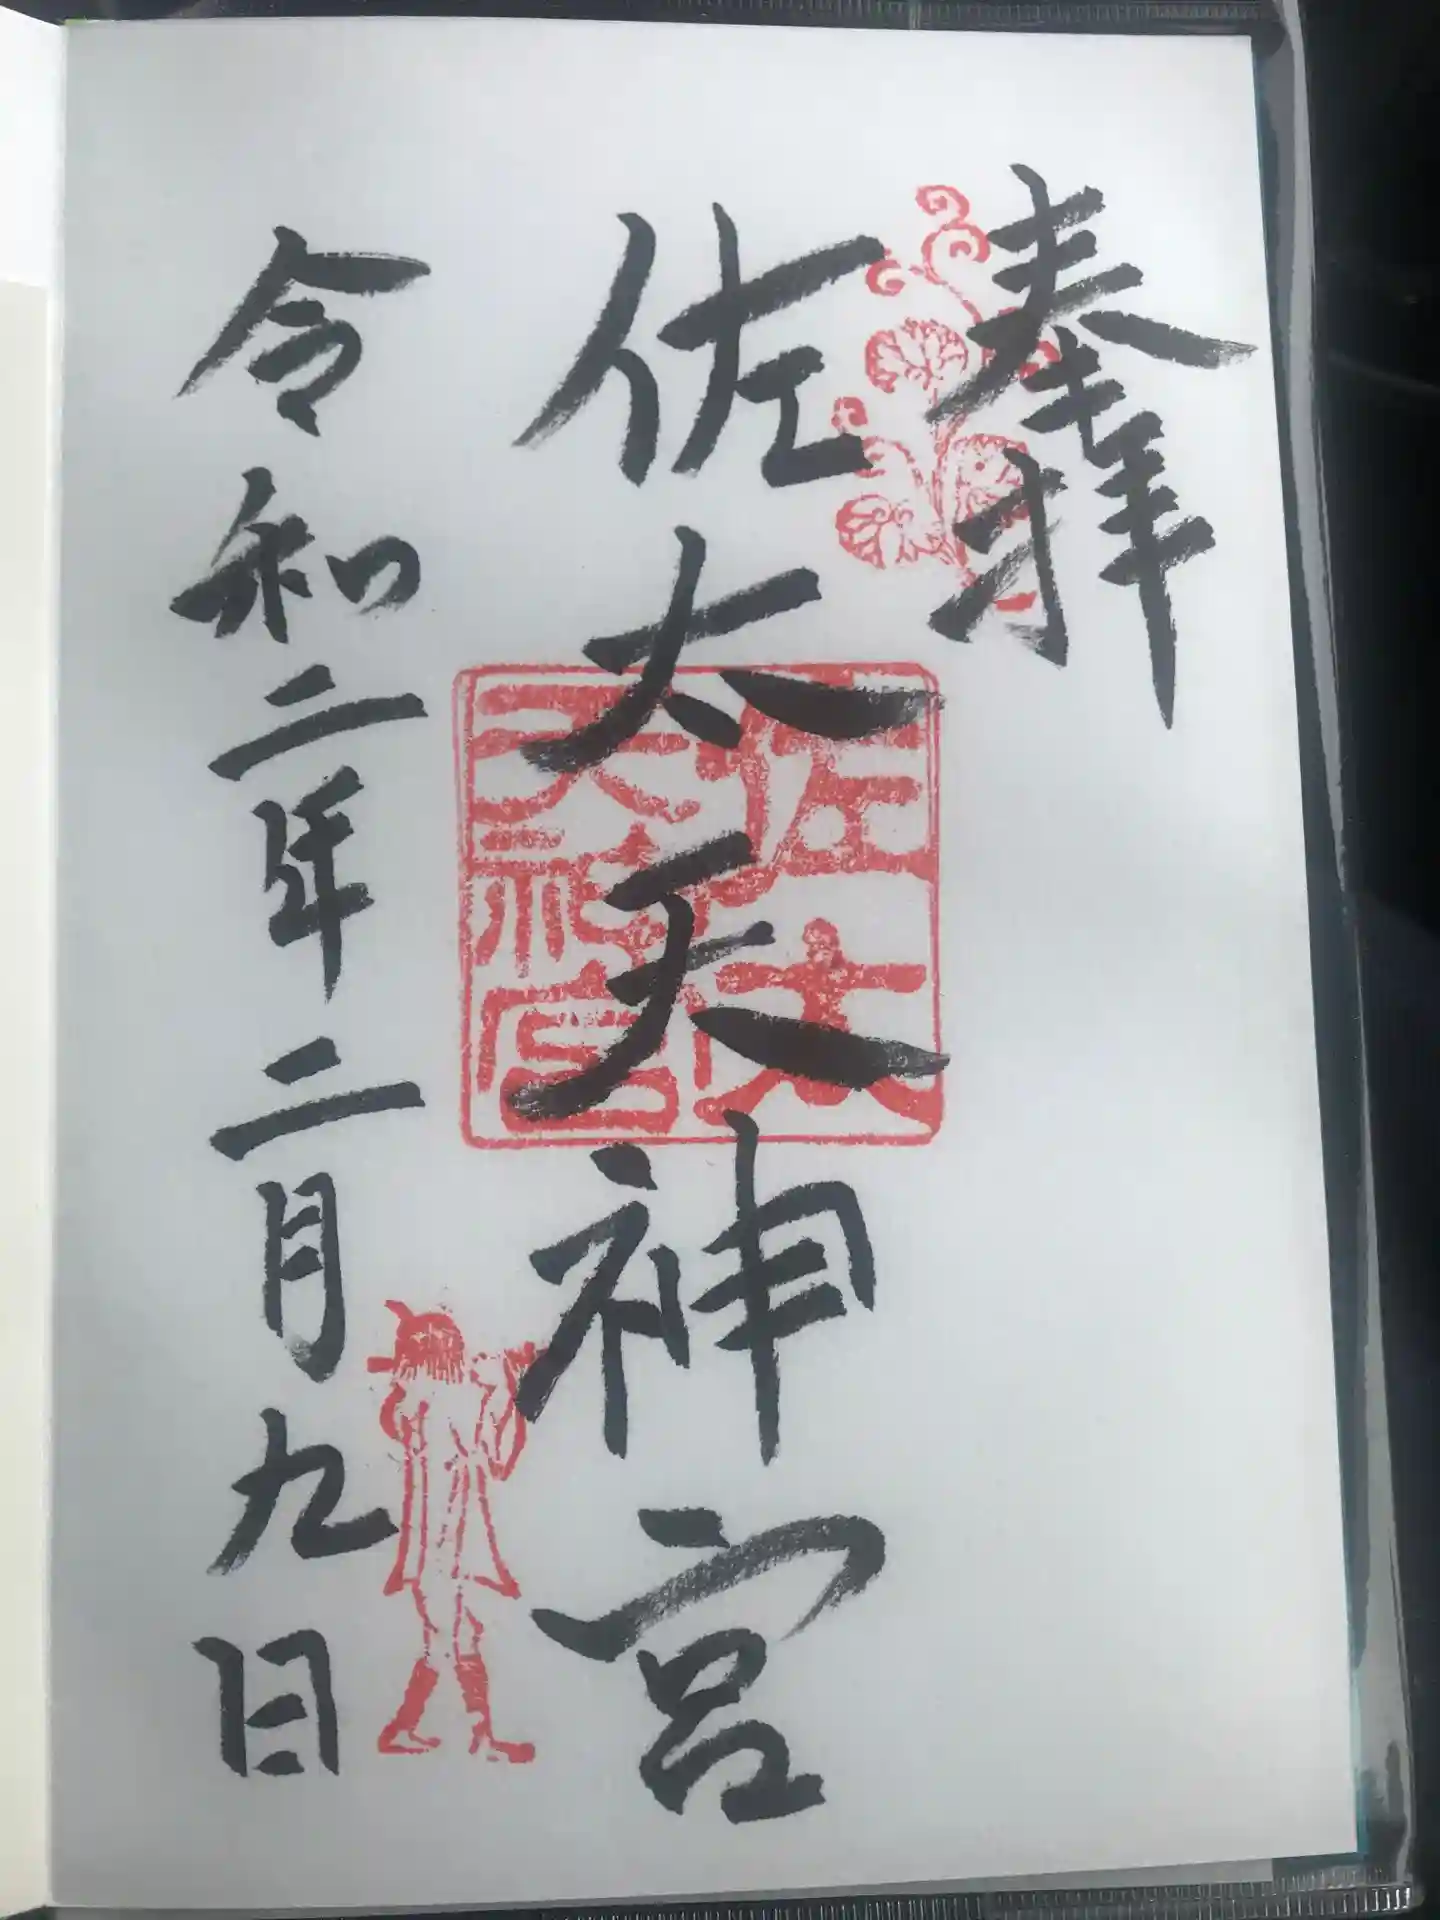 奉拝
佐太天神宮
佐太天神宮
令和二年二月九日